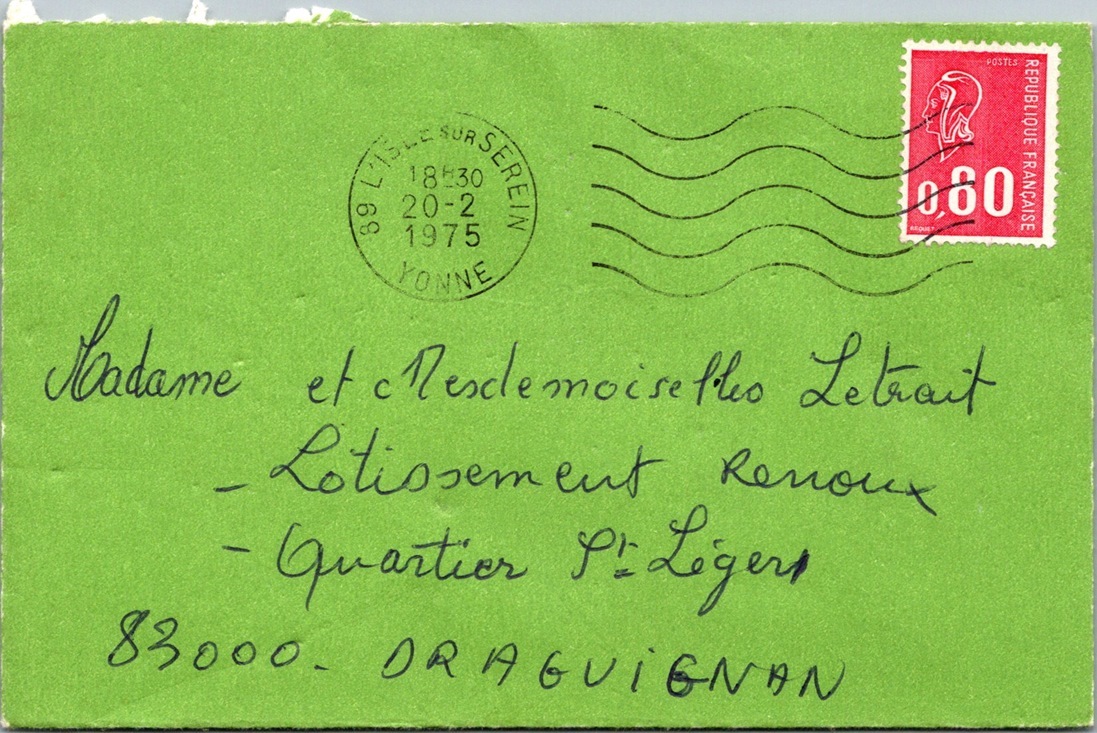 POSTES
REPUBLIQUE FRANÇAISE
0,80
BEQUET
89 L'ISLE SUR SEREIN
18H30
20-2
1975
YONNE
Madame et Mesdemoiselles Letrait
- Lotissement Renoux
- Quartier St Léger
83000 - DRAGUIGNAN